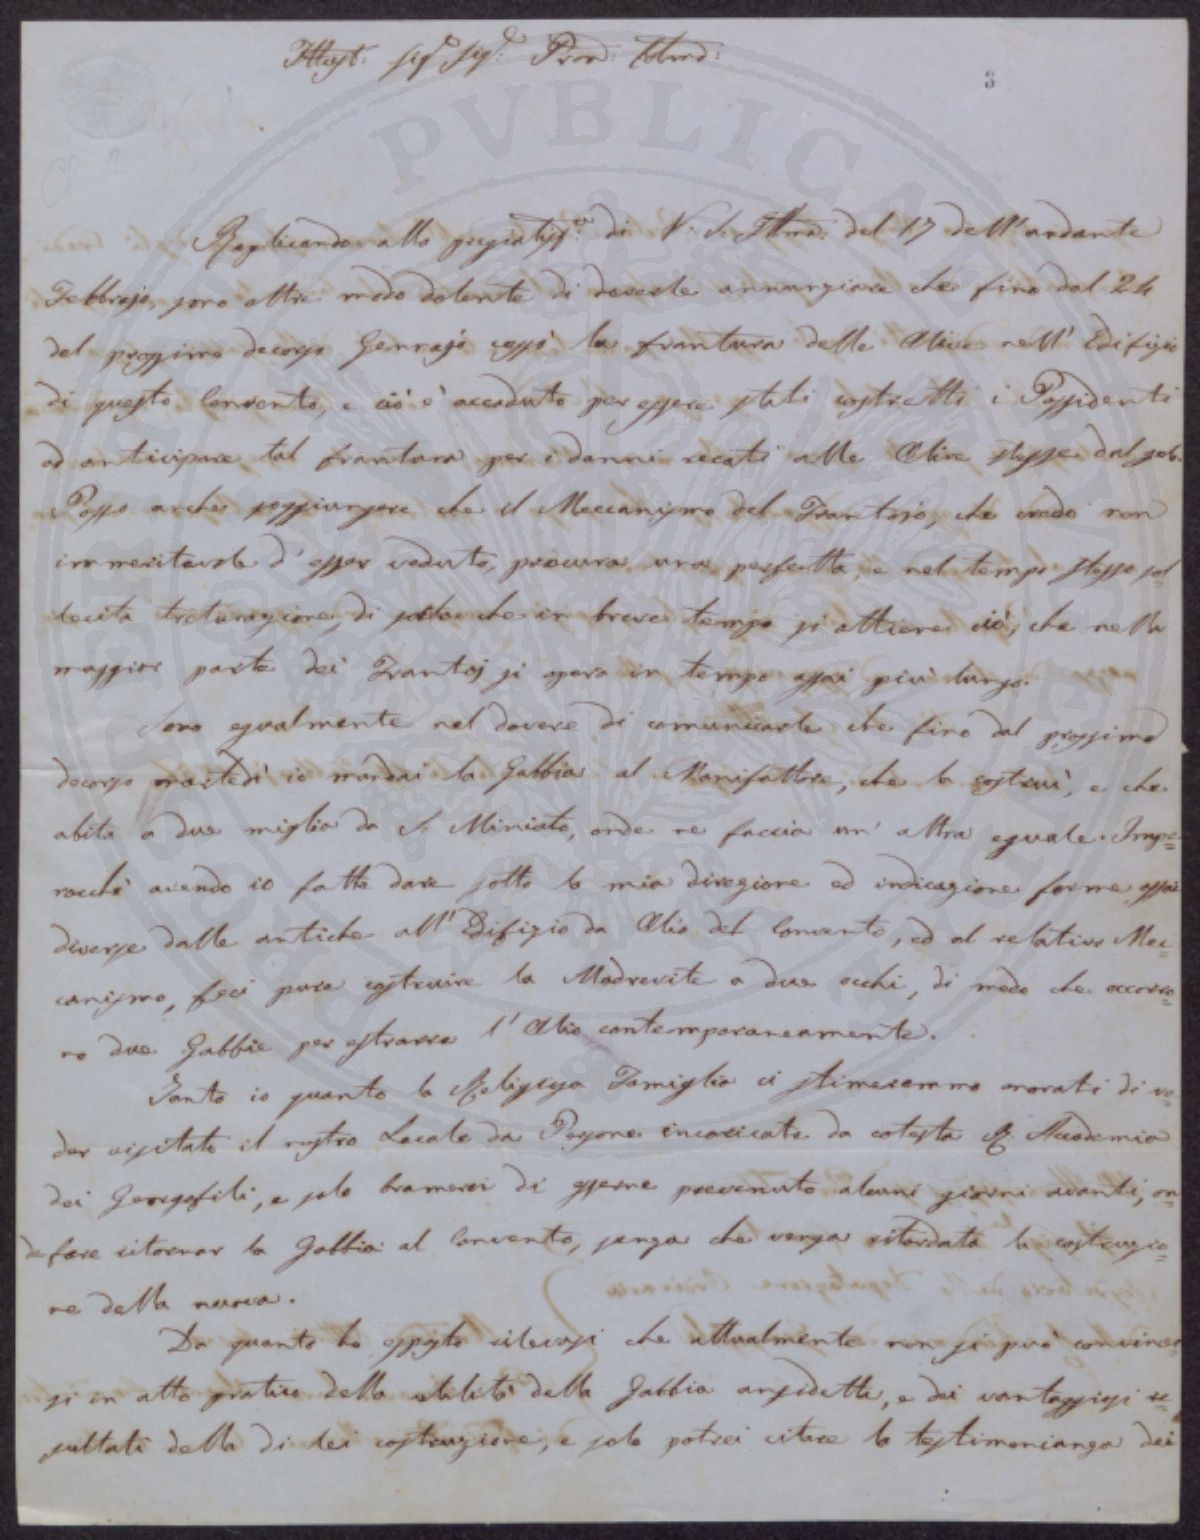 Illust: Sigr Sigr: Pron: Colmo:
3
Replicando alla pregiatiss:ma di V: S: Illma: del 17 dell'andante
Febbrajo, sono oltre modo dolente di doverle annunziare che fino dal 24
del prossimo decorso Gennajo cessò la frantura delle Olive nell'Edifizio
di questo Convento, e ciò è accaduto per essere stati costretti i Possidenti
ad anticipare tal frantura per i danni recati alle Olive stesse dal gelo.
Posso anche soggiungere che il Meccanismo del Frantojo, che credo non
immeritevole d'esser veduto, procura una perfetta, e nel tempo stesso sol=
lecita triturazione, di sorta che in breve tempo si ottiene ciò, che nella
maggior parte dei Frantoj si opera in tempo assai più lungo.
Sono egualmente nel dovere di comunicarle che fino dal prossimo
decorso martedì io mandai la Gabbia al Manifattore, che la costruì, e che
abita a due miglia da S. Miniato, onde ne faccia un'altra eguale. Impe=
rocchè avendo io fatto dare sotto la mia direzione ed indicazione forme assai
diverse dalle antiche all'Edifizio da Olio del Convento, ed al relativo Mec=
canismo, feci pure costruire la Madrevite a due occhi, di modo che occorro=
no due Gabbie per estrarre l'Olio contemporaneamente.
Tanto io quanto la Religiosa Famiglia ci stimeremmo onorati di ve=
der visitato il nostro Locale da Persone incaricate da cotesta R. Accademia
dei Georgofili, e solo bramerei di esserne prevenuto alcuni giorni avanti, on=
de fare ritornar la Gabbia al Convento, senza che venga ritardata la costruzio=
ne della nuova.
Da quanto ho esposto rilevasi che attualmente non si può convincer=
si in atto pratico della utilità della Gabbia ansidetta, e dei vantaggiosi re=
sultati della di lei costruzione, e solo potrei citare la testimonianza dei
PVBLICAE